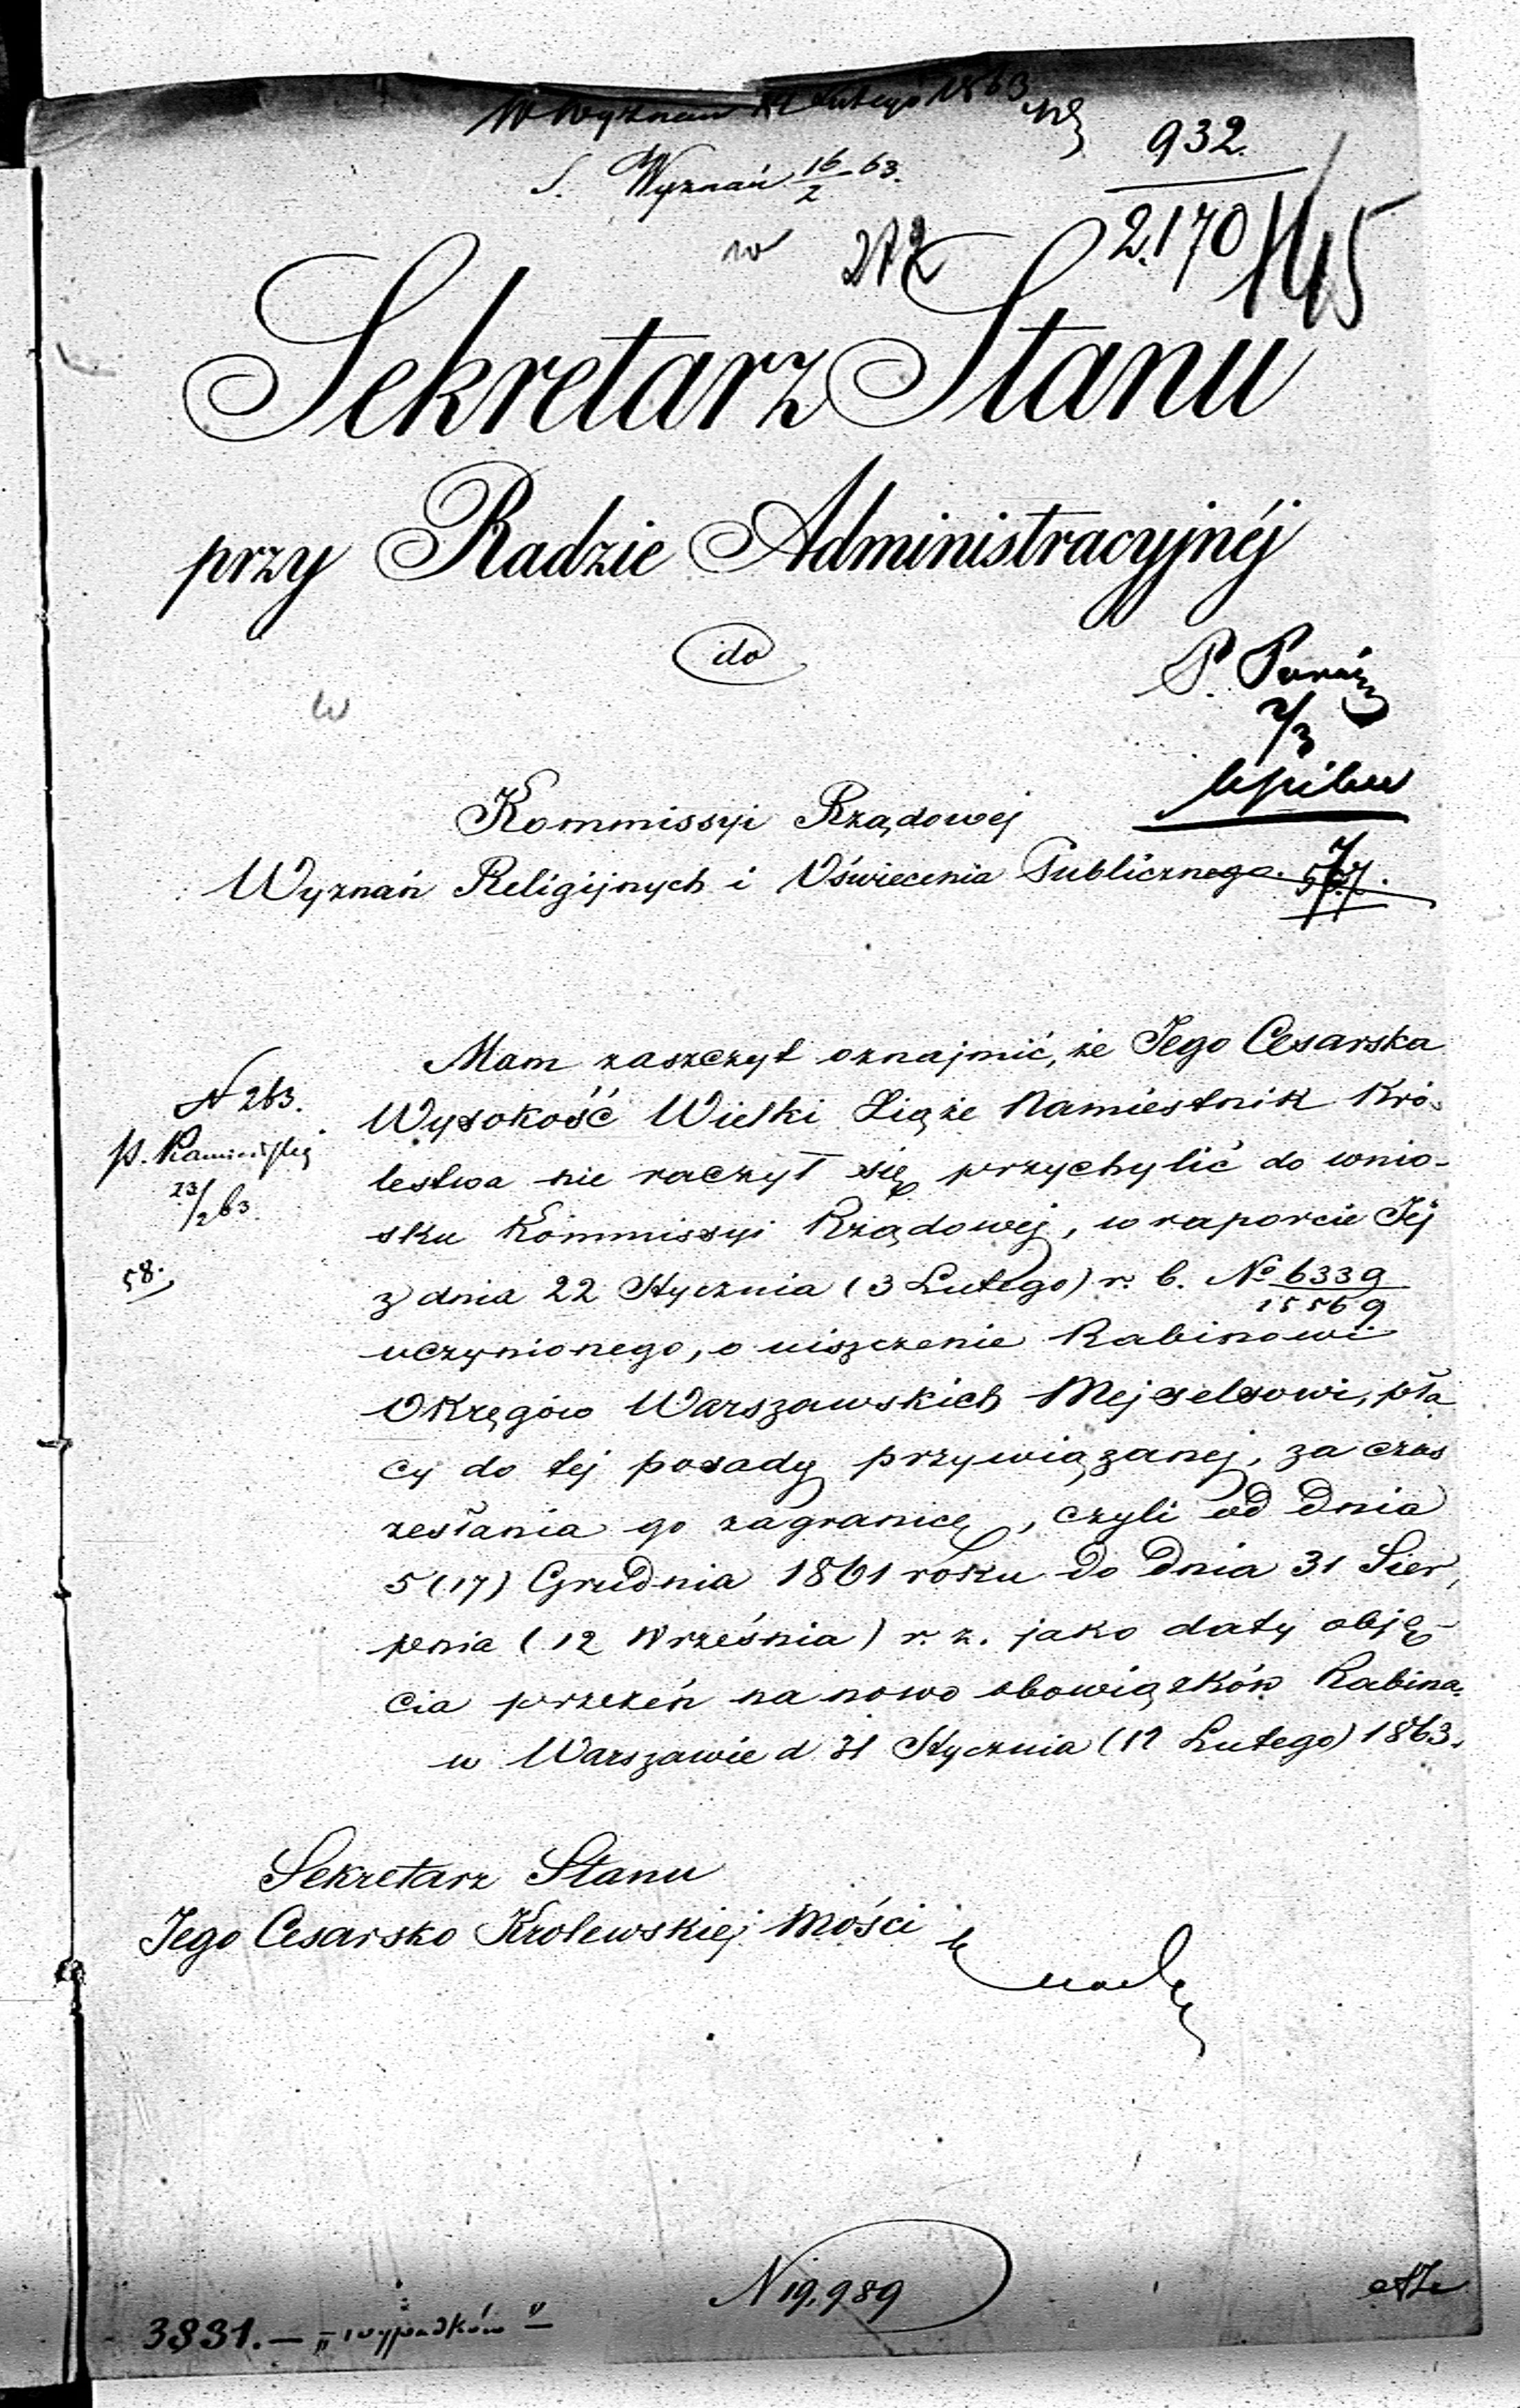 W Wyznań Lutego 1863
S. Wyznań 16/2 63.
932.
2.170
145
w 272
Sekretarz Stanu
przy Radzie Administracyjnéj
do
W
P.
2/3
Kommissyi Rządowej
Wyznań Religijnych i Oświecenia Publicznego.
Mam zaszczyt oznajmić, że Jego Cesarska
N 263.
Wysokość Wielki Xiąże Namiestnik Kró-
p.
lestwa nie raczył się przychylić do wnio-
23/2 63
sku Kommissyi Rządowej, w raporcie Jej
58.
z dnia 22 Stycznia (3 Lutego) r. b. No 6339/15569
uczynionego, o uiszczenie Rabinowi
Okręgów Warszawskich Mejselsowi, pła
cy do tej posady przywiązanej, za czas
zesłania go zagranicę, czyli od dnia
5 (17) Grudnia 1861 roku do dnia 31 Sier,
pnia (12 Września) r. z. jako daty obję-
cia przezeń na nowo obowiązków Rabina.
w Warszawie d. 31 Stycznia (12 Lutego) 1863.
Sekretarz Stanu
Jego Cesarsko Krolewskiej Mości
N 19,989
3831. — „wypadków" —